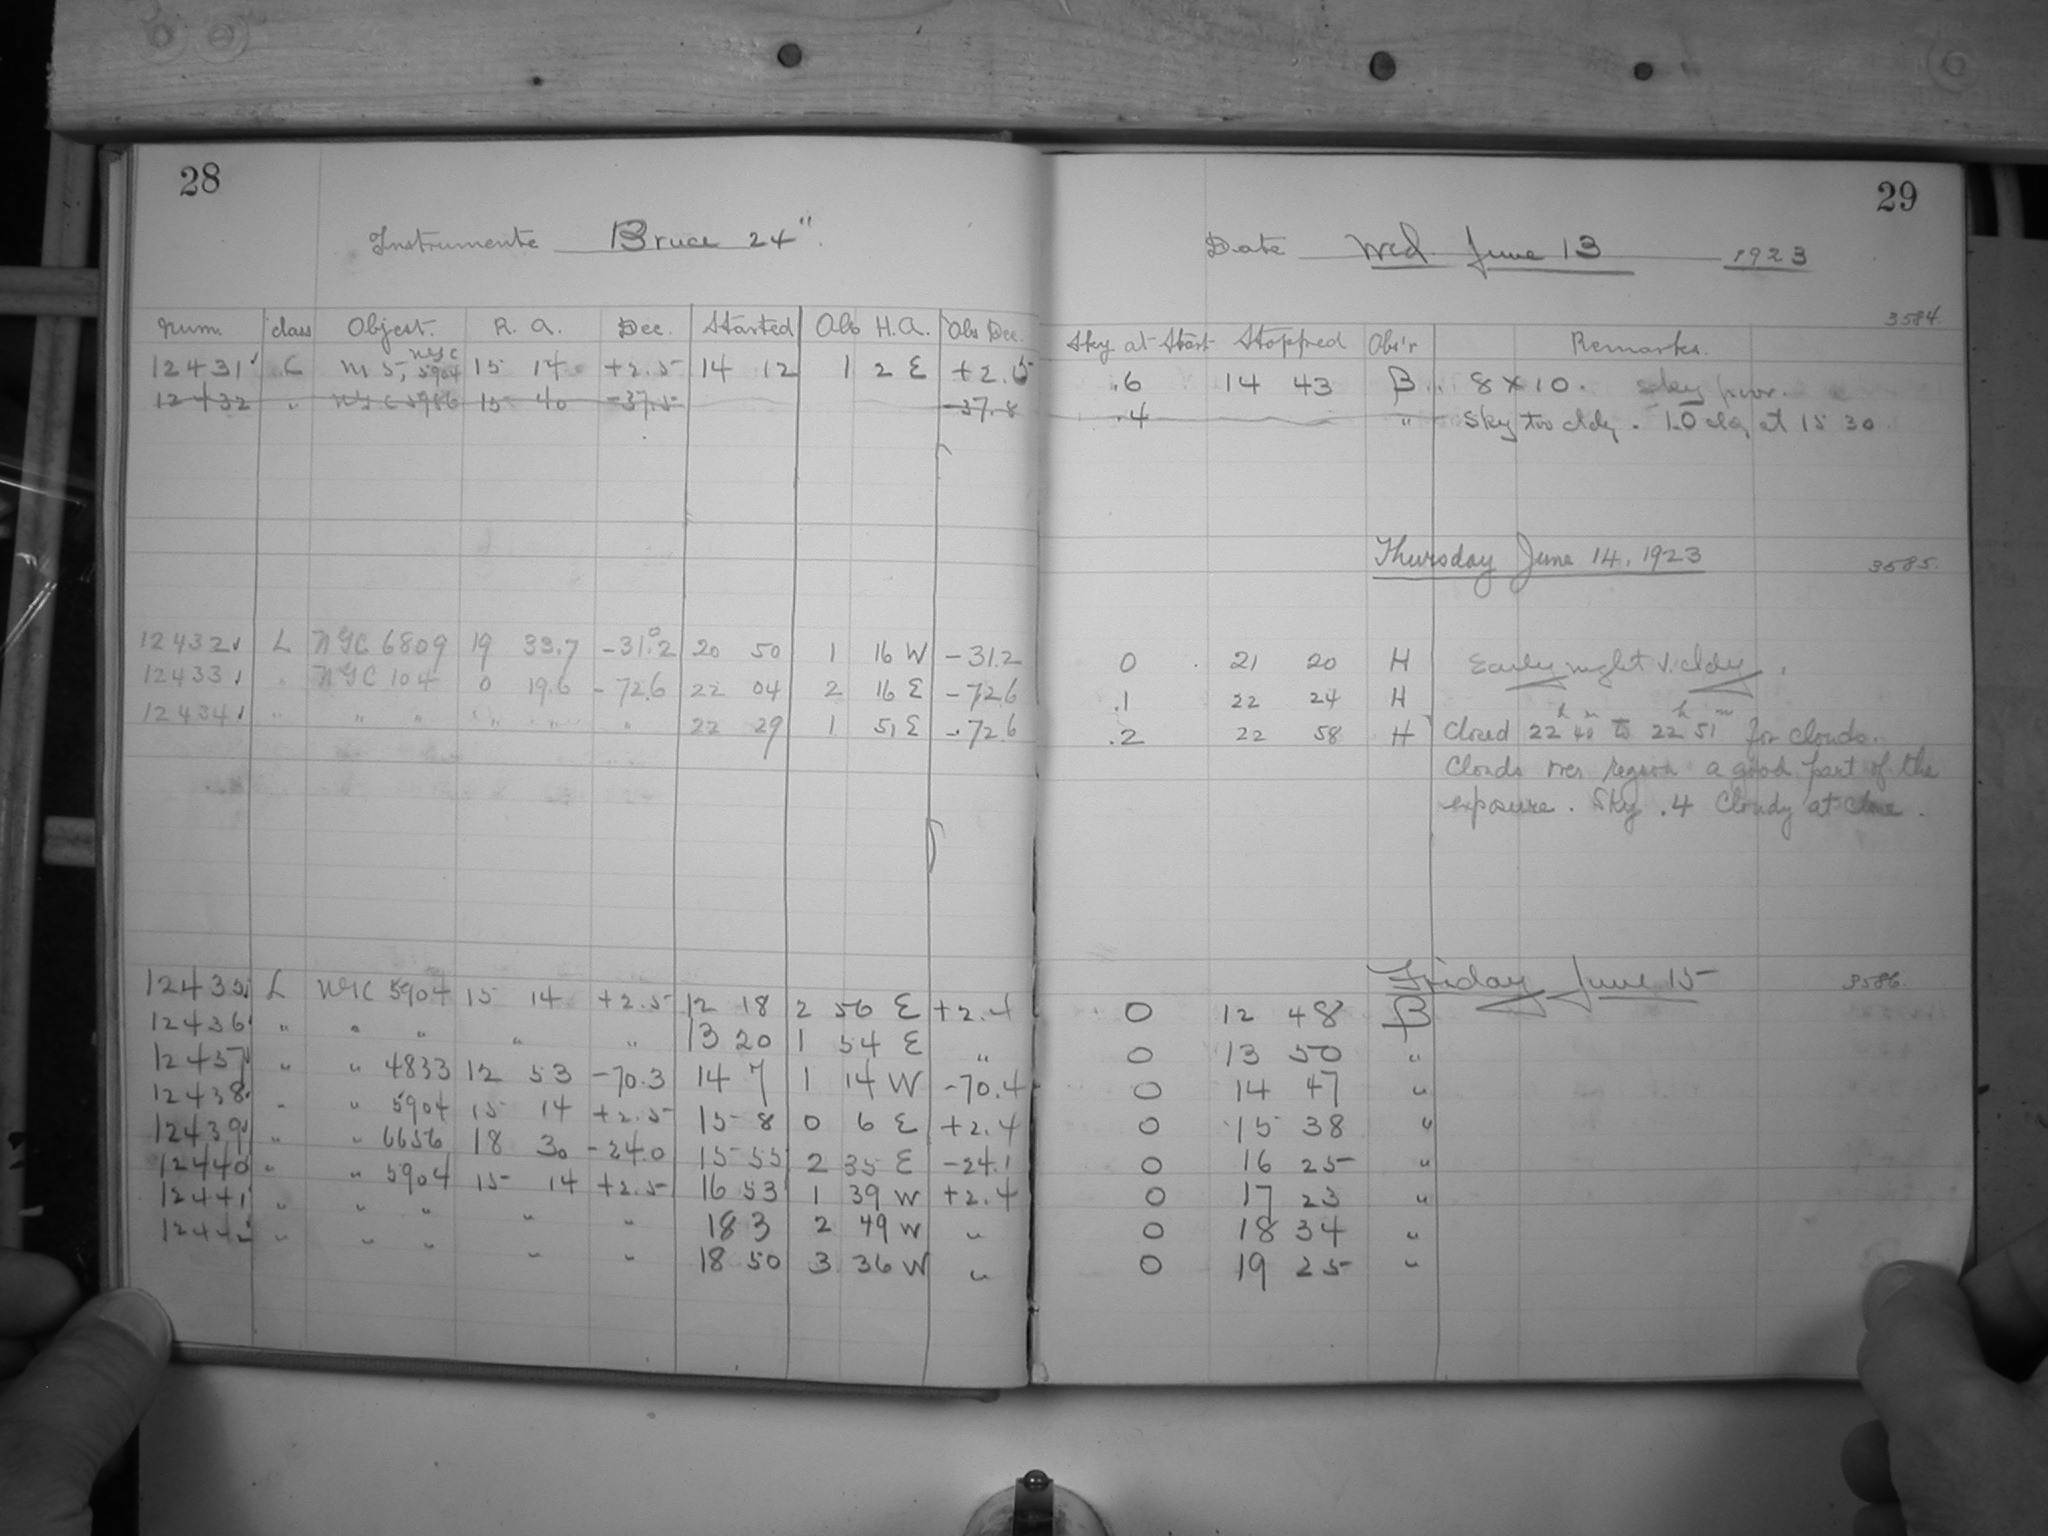 28
29
Instrument Bruce 24".
Date Wed. June 13 1923
3584.
Num. class Object. R. A. Dec. Started Obs H.A. Obs Dec. Sky at Start Stopped Obs'r Remarks.
12431 L M 5, NGC 5904 15 14 +2.5 14 12 1 2 E +2.5 .6 14 43 B 8 x 10. Sky poor.
12432 " NGC 5986 15 40 -37.5 -37.8 .4 " Sky too cldy. 1.0 cldy at 15 30
Thursday June 14, 1923 3585.
12432 L NGC 6809 19 33.7 -31°.2 20 50 1 16 W -31.2 0 21 20 H Early night v. cldy.
12433 " NGC 104 0 19.6 -72.6 22 04 2 16 E -72.6 .1 22 24 H
12434 " " " " " " 22 29 1 51 E -72.6 .2 22 58 H Closed 22h 40m to 22h 51m for clouds.
Clouds over region a good part of the
exposure. Sky .4 Cloudy at close.
Friday June 15 3586.
12435 L NGC 5904 15 14 +2.5 12 18 2 56 E +2.4 0 12 48 B
12436 " " " " " 13 20 1 54 E " 0 13 50 "
12437 " " 4833 12 53 -70.3 14 7 1 14 W -70.4 0 14 47 "
12438 " " 5904 15 14 +2.5 15 8 0 6 E +2.4 0 15 38 "
12439 " " 6656 18 30 -24.0 15 55 2 35 E -24.1 0 16 25 "
12440 " " 5904 15 14 +2.5 16 53 1 39 W +2.4 0 17 23 "
12441 " " " " " 18 3 2 49 W " 0 18 34 "
12442 " " " " " 18 50 3 36 W " 0 19 25 "